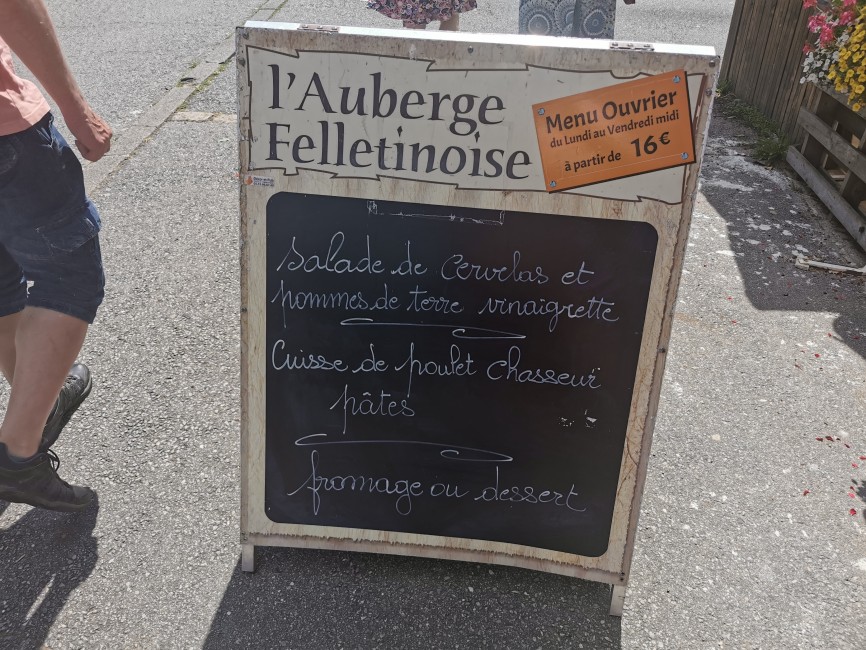 l'Auberge
Felletinoise
Menu Ouvrier
du Lundi au Vendredi midi
à partir de 16€
Salade de Cervelas et
pommes de terre vinaigrette
Cuisse de poulet Chasseur
pâtes
fromage ou dessert